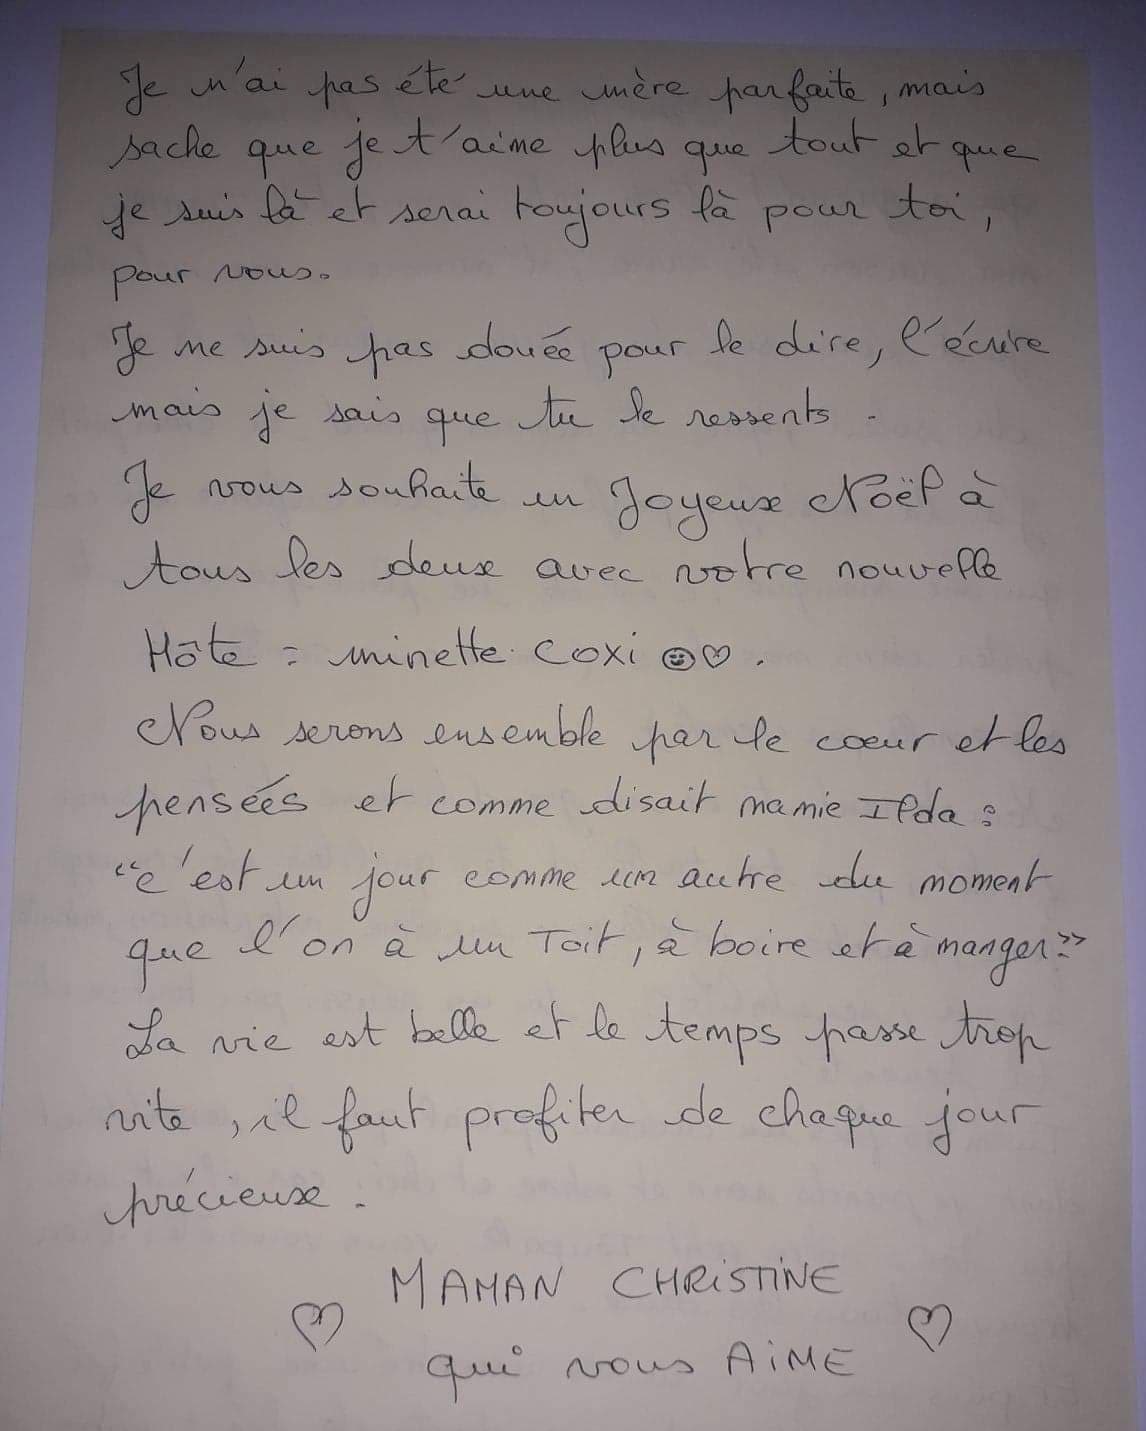 Je n'ai pas été une mère parfaite, mais
sache que je t'aime plus que tout et que
je suis là et serai toujours là pour toi,
pour vous.
Je ne suis pas douée pour le dire, l'écrire
mais je sais que tu le ressents.
Je vous souhaite un Joyeux Noël à
tous les deux avec votre nouvelle
Hôte : minette Coxi ☺♡.
Nous serons ensemble par le coeur et les
pensées et comme disait mamie Ilda :
"c'est un jour comme un autre du moment
que l'on à un Toit, à boire et à manger."
La vie est belle et le temps passe trop
vite, il faut profiter de chaque jour
précieux.
MAMAN CHRISTINE
♡ qui vous AIME ♡